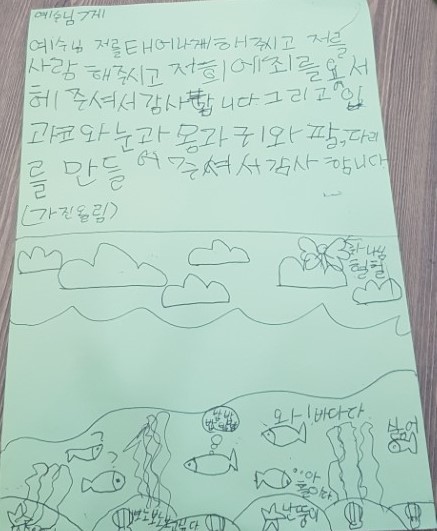 예수님 7게
예수님 저를태어나게 해주시고 저를
사랑 해주시고 저희에죄를 요서
혜 주셔서감사합니다 그리고 입
과코와눈과 몽과 귀와 팔,다리
를 만들어주셔서감사합니다
(가진올림)
하나님
와! 바다다
상어